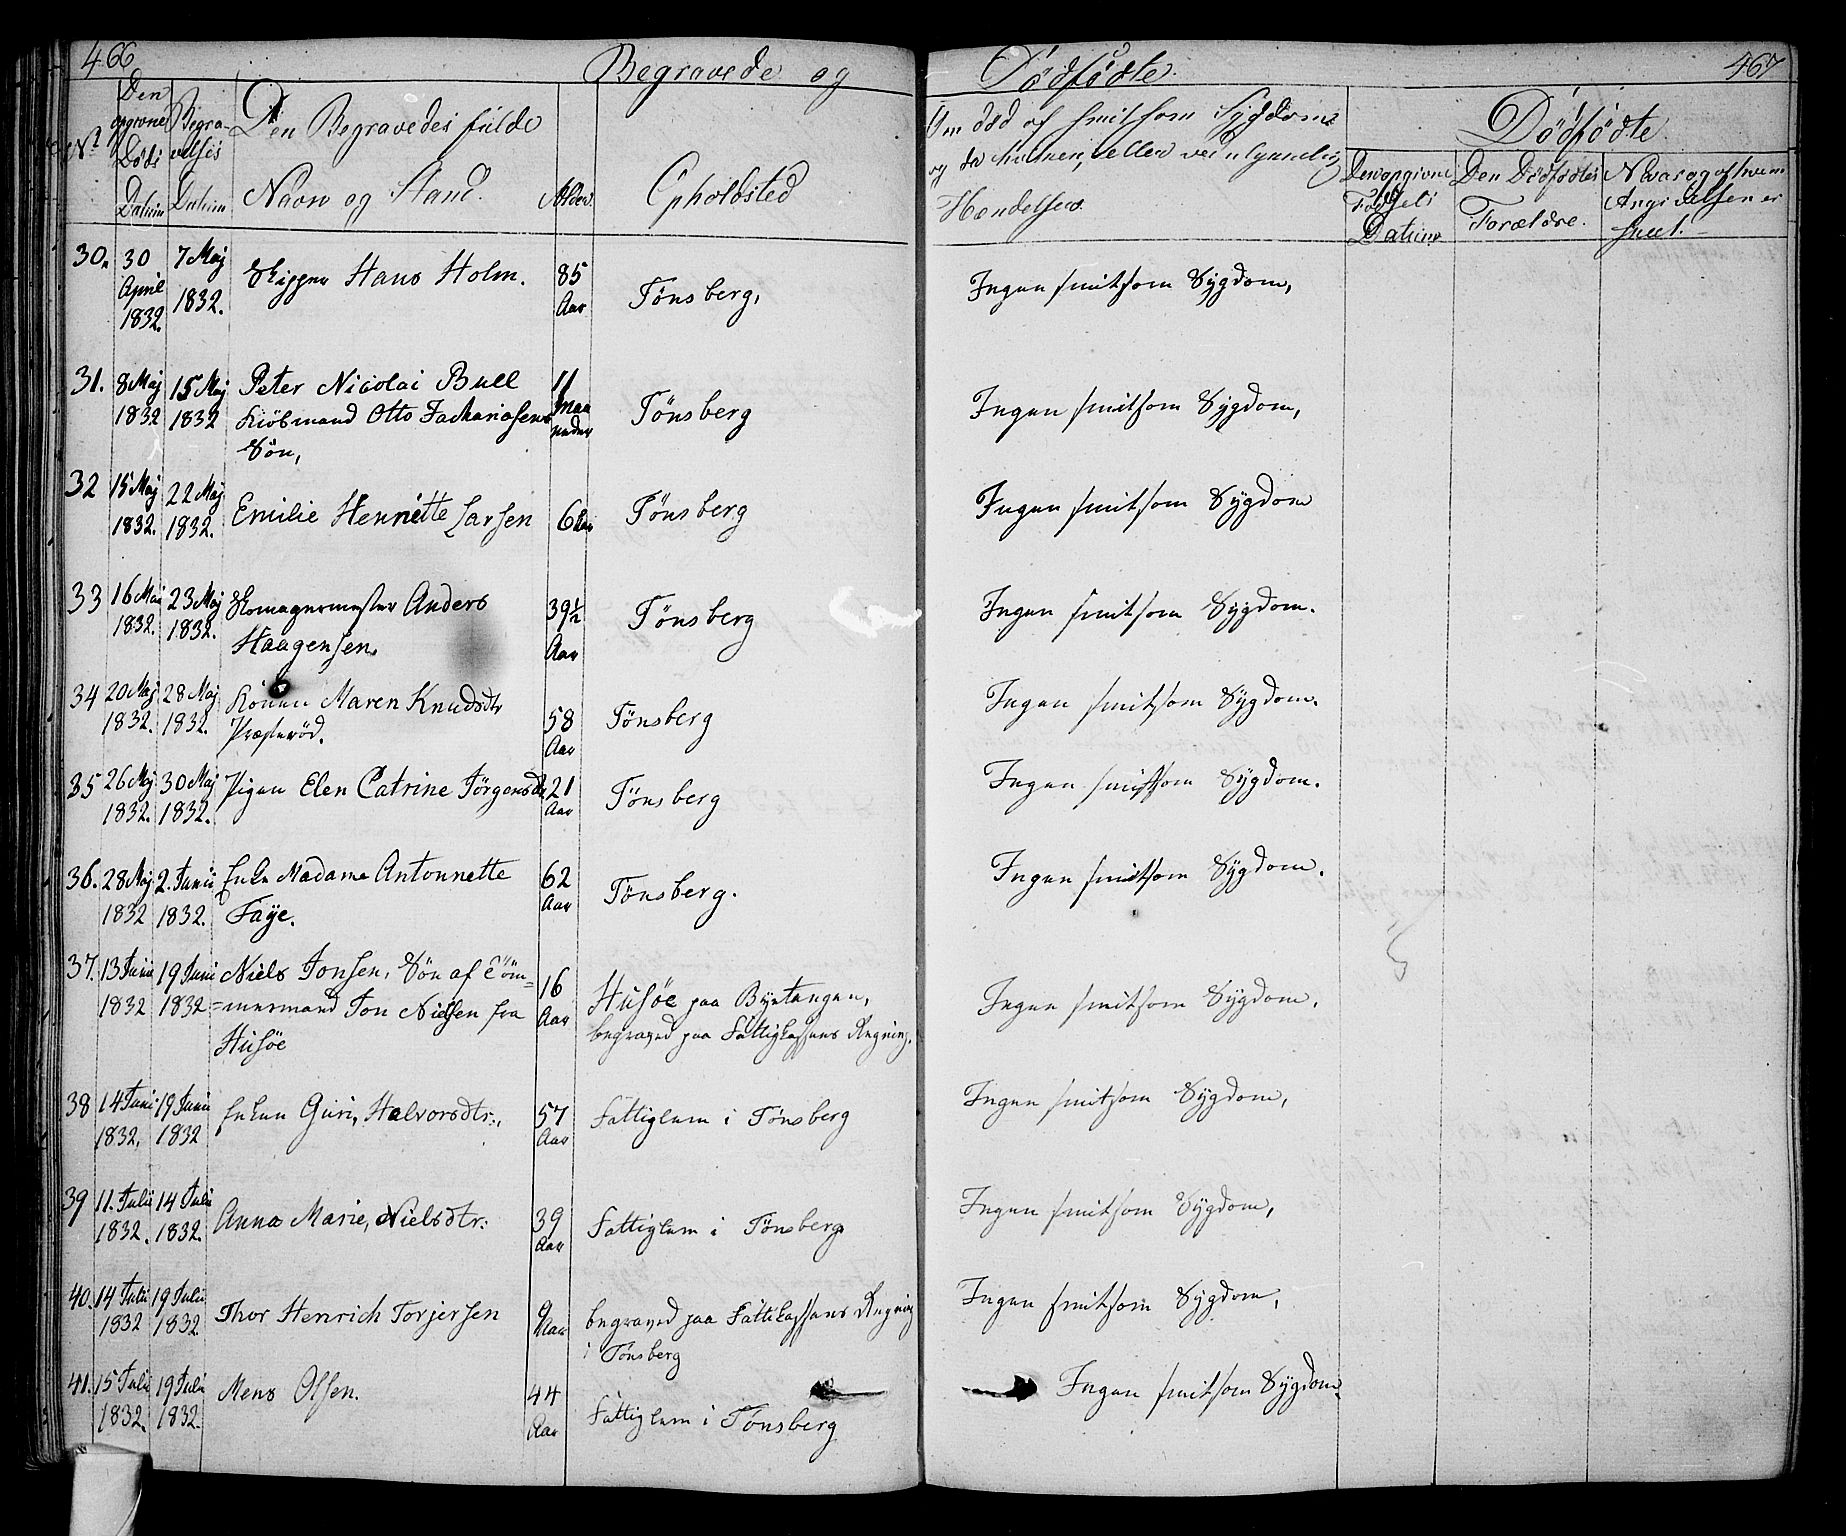 466
Begravede og
Dødfødte.
467
Nº
Den opgivne Døds Datum
Begravelses Datum
Den Begravedes fulde
Navn og Stand.
Alder.
Opholdsted
Om død af smitsom Sygdom
og da hvilken, eller ved ulykkelig
Hændelse.
Dødfødte
Den opgivne Fødsels Datum
Den Dødfødtes Forældre.
Naar og af hvem Angivelsen er skeet.
30. 30 April 1832. 7 Maj 1832. Skipper Hans Holm. 85 Aar Tönsberg, Ingen smitsom Sygdom,
31. 8 Maj 1832 15 Maj 1832 Peter Nicolai Bull
Kiöbmand Otto Zachariasens
Sön, 11 Maaneder Tönsberg Ingen smitsom Sygdom,
32 15 Maj 1832. 22 Maj 1832. Emilie Henriette Larsen 6 Aar Tönsberg Ingen smitsom Sygdom
33 16 Maj 1832. 23 Maj 1832. Skomagermester Anders
Haagensen. 39½ Aar Tönsberg Ingen smitsom Sygdom.
34 20 Maj 1832. 28 Maj 1832. Konen Maren Knudsdtr
Præsteröd. 58 Aar Tönsberg Ingen smitsom Sygdom.
35 26 Maj 1832. 30 Maj 1832. Pigen Elen Catrine Jörgensdtr 21 Aar Tönsberg Ingen smitsom Sygdom.
36. 28 Maj 1832 2. Junii 1832. Enke Madame Antonnette
Faÿe. 62 Aar Tönsberg. Ingen smitsom Sygdom.
37. 13 Junii 1832 19 Juni 1832 Niels Jonsen, Sön af Töm-
=mermand Jon Nielsen fra
Husöe 16 Aar Husöe paa Byetangen,
begraved paa Fattigkassens Regning. Ingen smitsom Sygdom,
38 14 Juni 1832, 19 Junii 1832 Enken Guri, Halvorsdtr:, 57 Aar Fattiglem i Tönsberg Ingen smitsom Sygdom,
39 11. Julii 1832. 14 Julii 1832. Anna Marie, Nielsdtr: 39 Aar Fattiglem i Tönsberg Ingen smitsom Sygdom,
40. 14 Julii 1832 19 Julii 1832 Thor Henrich Torjersen 9 Aar begraved paa Fattikassens Regning
i Tönsberg Ingen smitsom Sygdom,
41. 15 Julii 1832. 19 Julii 1832. Mens Olsen. 44 Aar Fattiglem i Tönsberg Ingen smitsom Sygdom.